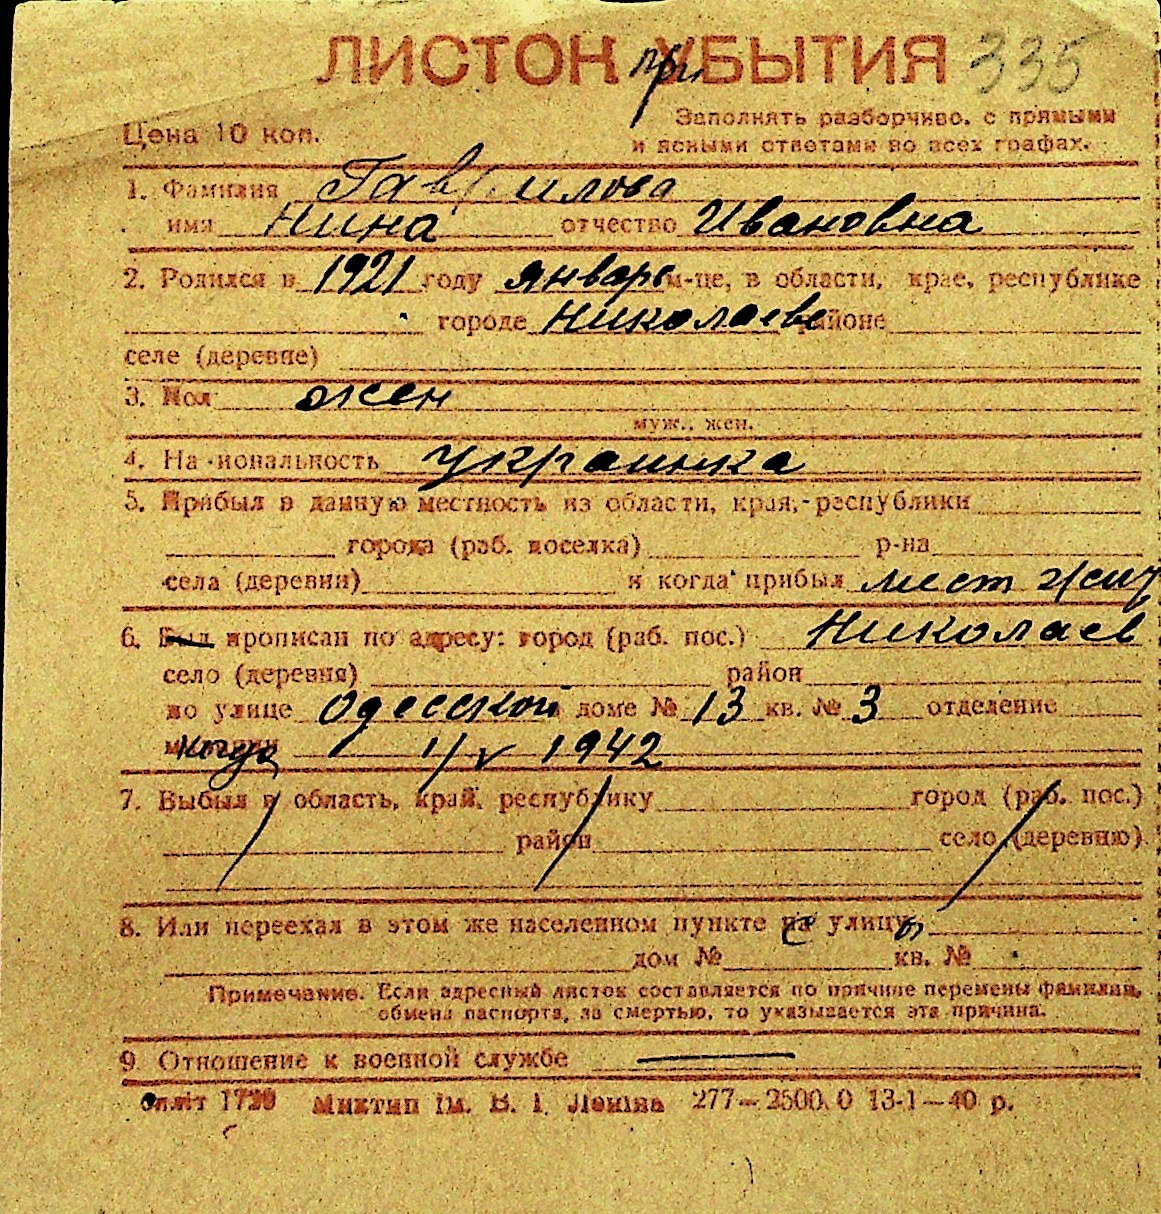 ЛИСТОК при УБЫТИЯ 335
Цена 10 коп.
Заполнять разборчиво, с прямыми
и ясными ответами во всех графах.
1. Фамилия Гаврилова
имя Нина отчество Ивановна
2. Родился в 1921 году январь м-це, в области, крае, республике
городе Николаеве районе
селе (деревне)
3. Пол жен
муж., жен.
4. Национальность украинка
5. Прибыл в данную местность из области, края, республики
города (раб. поселка) р-на
села (деревни) и когда прибыл мест жит
6. Был прописан по адресу: город (раб. пос.) Николаев
село (деревня) район
по улице Одесской доме № 13 кв. № 3 отделение
милиции когда 1/V 1942
7. Выбыл в область, край, республику город (раб. пос.)
район село (деревню)
8. Или переехал в этом же населенном пункте на с улицы
дом № кв. №
Примечание. Если адресный листок составляется по причине перемены фамилии,
обмена паспорта, за смертью, то указывается эта причина.
9. Отношение к военной службе —
Облліт 1720 Миктип ім. В. І. Леніна 277—2500.0 13-1—40 р.